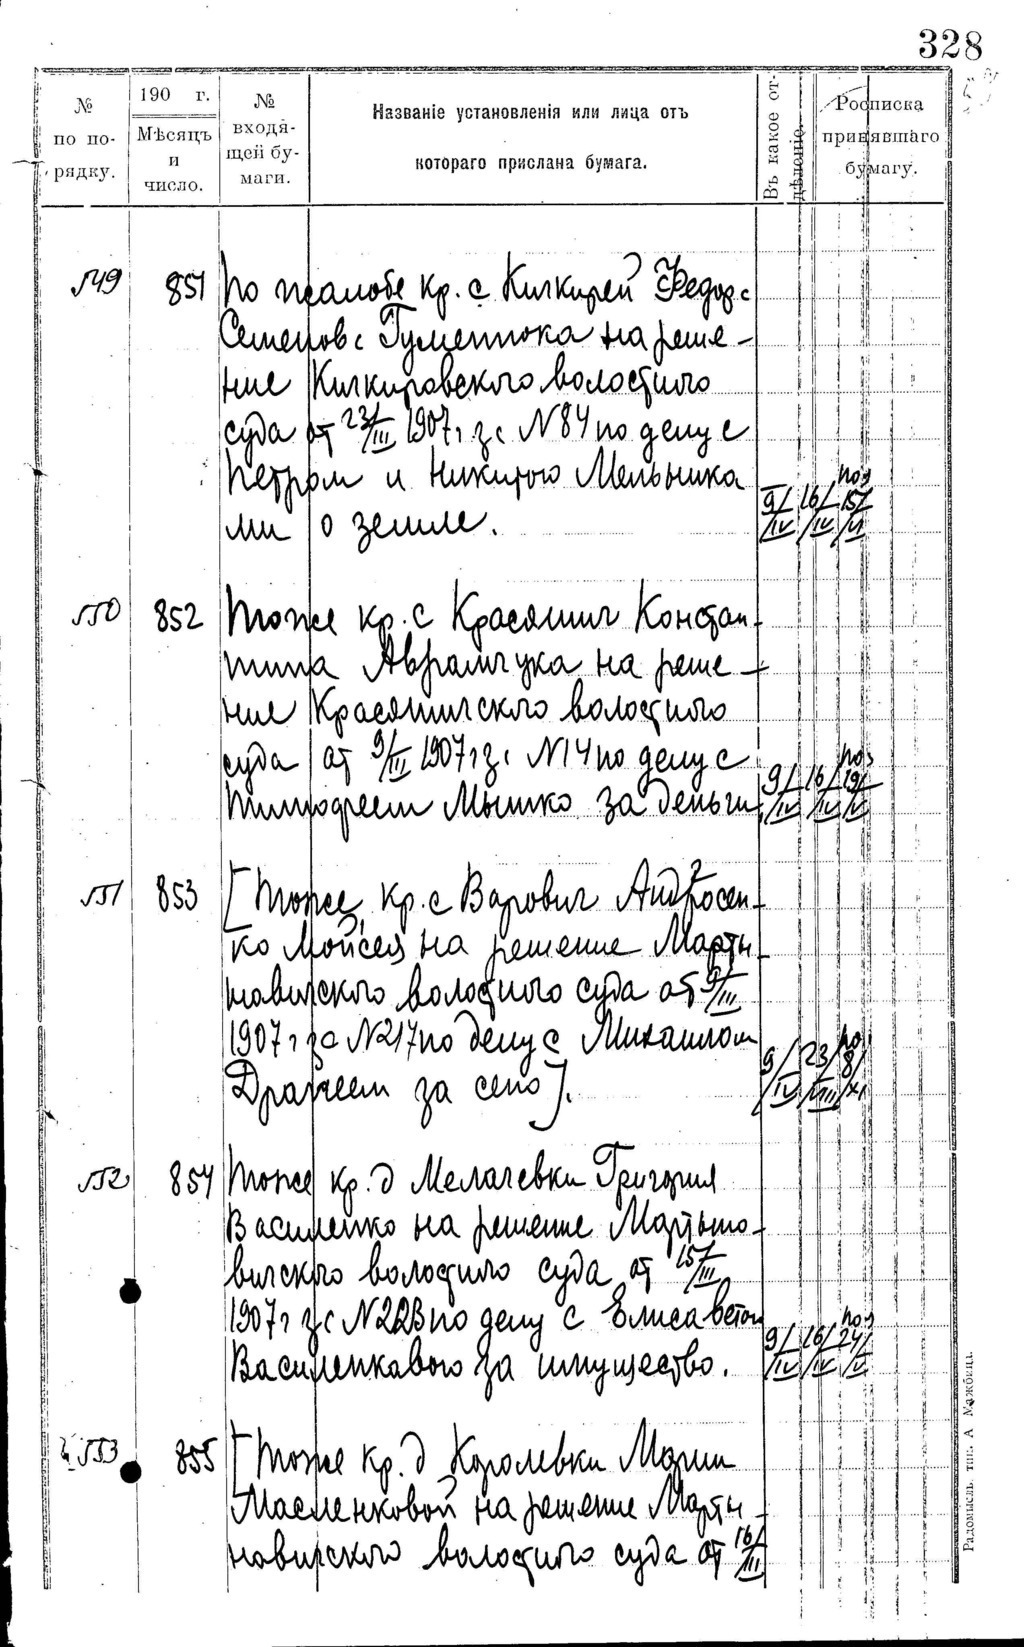 328
№ по порядку.
190 г. Мѣсяцъ и число.
№ входящей бумаги.
Названіе установленія или лица отъ котораго прислана бумага.
Въ какое отдѣленіе.
Росписка принявшаго бумагу.
549 851 По жалобе кр. с Кичкирей Федора
Семенова Гуменюка на реше-
ние Кичкировского волостного
суда от 23/III 1907 г за N84 по делу с
Петром и Никитою Мельника
ми о земле. 9/IV 16/IV 15/VI
550 852 тоже кр. с Красятич Констан-
тина Аврамчука на реше-
ние Красятичского волостного
суда от 9/III 1907 г за N14 по делу с
Тимофеем Мышко за деньги 9/IV 16/IV 19/V
551 853 [тоже кр. с Варович Андросен-
ко Мойсея на решение Марты-
новичского волостного суда от 9/III
1907 г за N217 по делу с Михаилом
Дражеем за сено]. 9/IV 23/VIII 8/XI
552 854 тоже кр. д Мелачевки Григория
Василенко на решение Мартыно-
вичского волостного суда от 15/III
1907 г за N223 по делу с Елисаветой
Василенкавою за имущество. 9/IV 16/IV 24/V
553 855 [тоже кр. д Королевки Марии
Масленковой на решение Марты-
новичского волостного суда от 16/III
Радомысль, тип. А